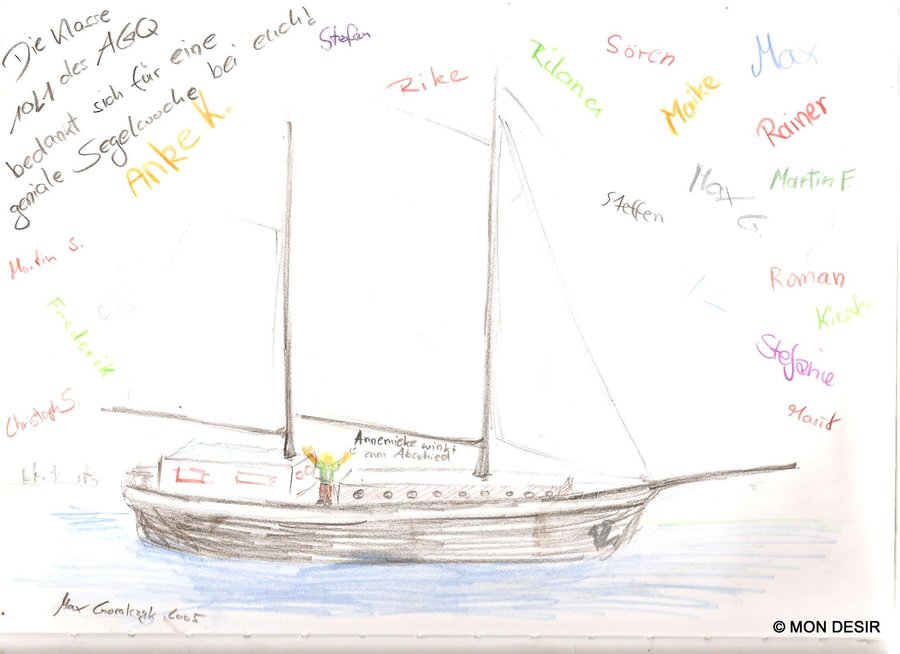 Die Klasse
10L1 des AGQ
bedankt sich für eine
geniale Segelwoche bei euch!
Anke K.
Stefan
Rike
Rilana
Sören
Maike
Max
Rainer
Steffen
Max
G.
Martin F.
Martin S.
Frederik
Roman
Stefanie
Marit
Christoph S.
Annemieke winkt
zum Abschied
Max 2005
© MON DESIR